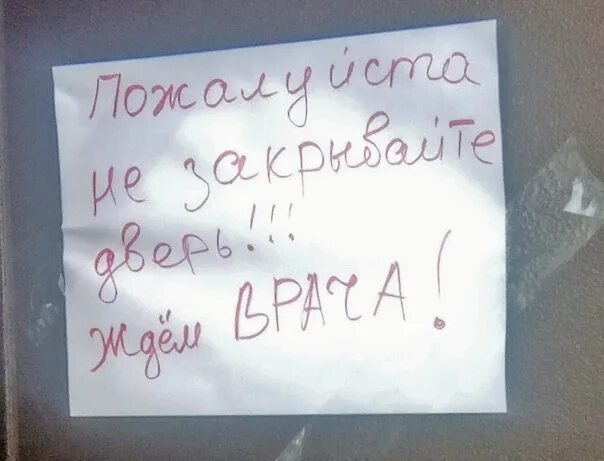 Пожалуйста
не закрывайте
дверь!!!
ждём ВРАЧА!